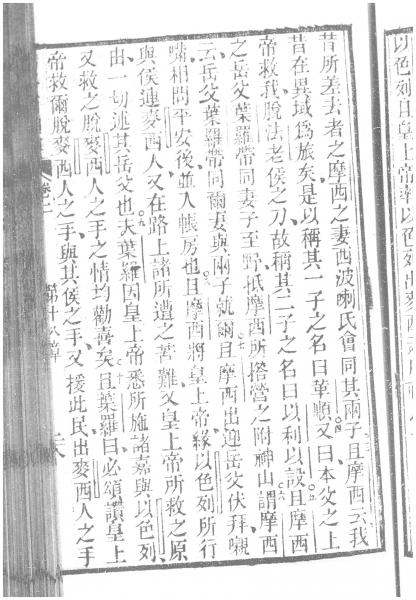 以色列且皇上帝率以色列出麥西
昔所差去者之摩西之妻西波喇氏會同其兩子且摩西云我
昔在異域為旅矣是以稱其一子之名曰革順又曰本父之上
帝救我脫法老侯之刀故稱其二子之名曰以利以設且摩西
之岳父葉羅帶同妻子至野抵摩西所搭營之附神山謂摩西
云岳父葉羅帶同爾妻與兩子就爾且摩西出迎岳父伏拜嚫
啸相問平安後並入帳房也且摩西將皇上帝緣以色列所行
與侯連麥西人又在路上諸所遭之苦難又皇上帝所救之原
由一切述其岳父也夫葉羅因皇上帝悉所施諸嘉與以色列
又救之脫麥西人之手之情均勸喜矣且葉羅曰必頌讚皇上
帝救爾脫麥西人之手與其侯之手又援此民出麥西人之手
卷二 第十八章